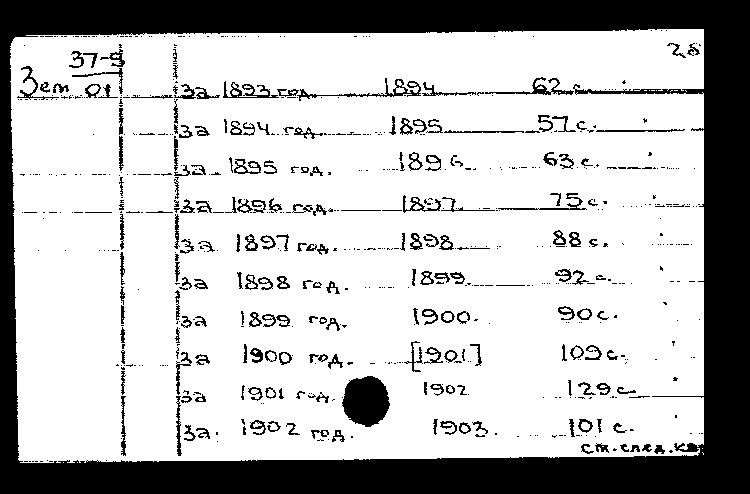 37-5 28
Зет 01 за 1893 год. 1894 62 с.
за 1894 год. 1895 57 с.
за 1895 год. 1896 63 с.
за 1896 год. 1897 75 с.
за 1897 год. 1898 88 с.
за 1898 год. 1899 92 с.
за 1899 год. 1900. 90 с.
за 1900 год. [1901] 109 с.
за 1901 год. 1902 129 с.
за 1902 год. 1903. 101 с.
см. след.